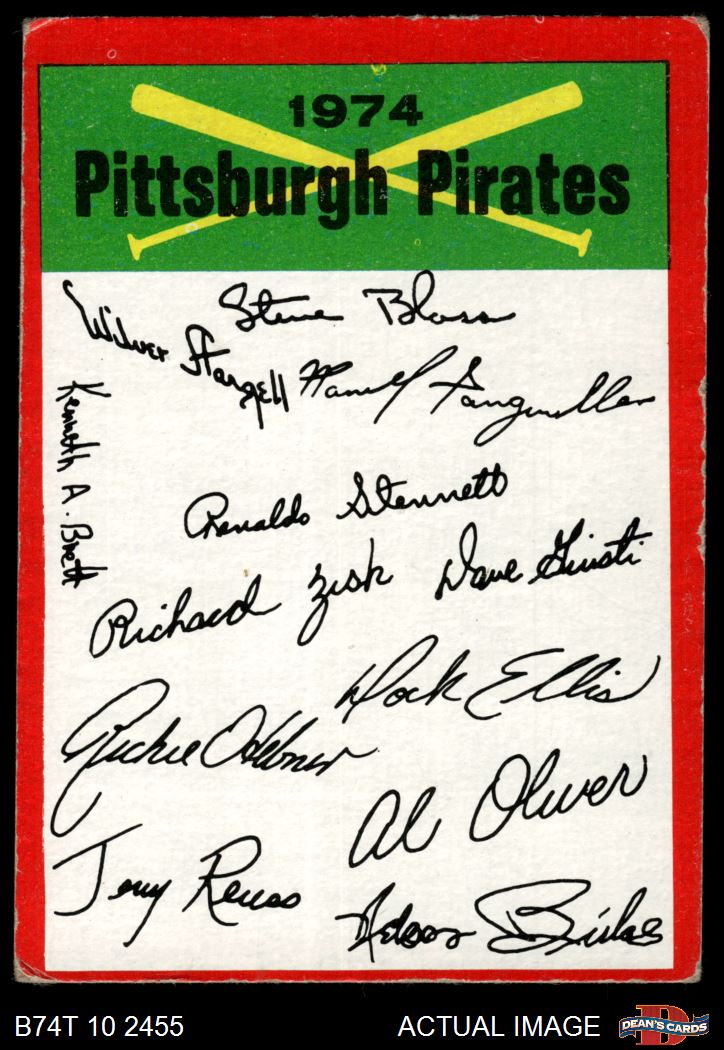 1974
Pittsburgh Pirates
Steve Blass
Wilver Stargell
Manuel Sanguillen
Kenneth A. Brett
Renaldo Stennett
Richard Zisk
Dave Giusti
Dock Ellis
Richie Hebner
Al Oliver
Jerry Reuss
Nelson Briles
B74T 10 2455
ACTUAL IMAGE
D
DEAN'S CARDS